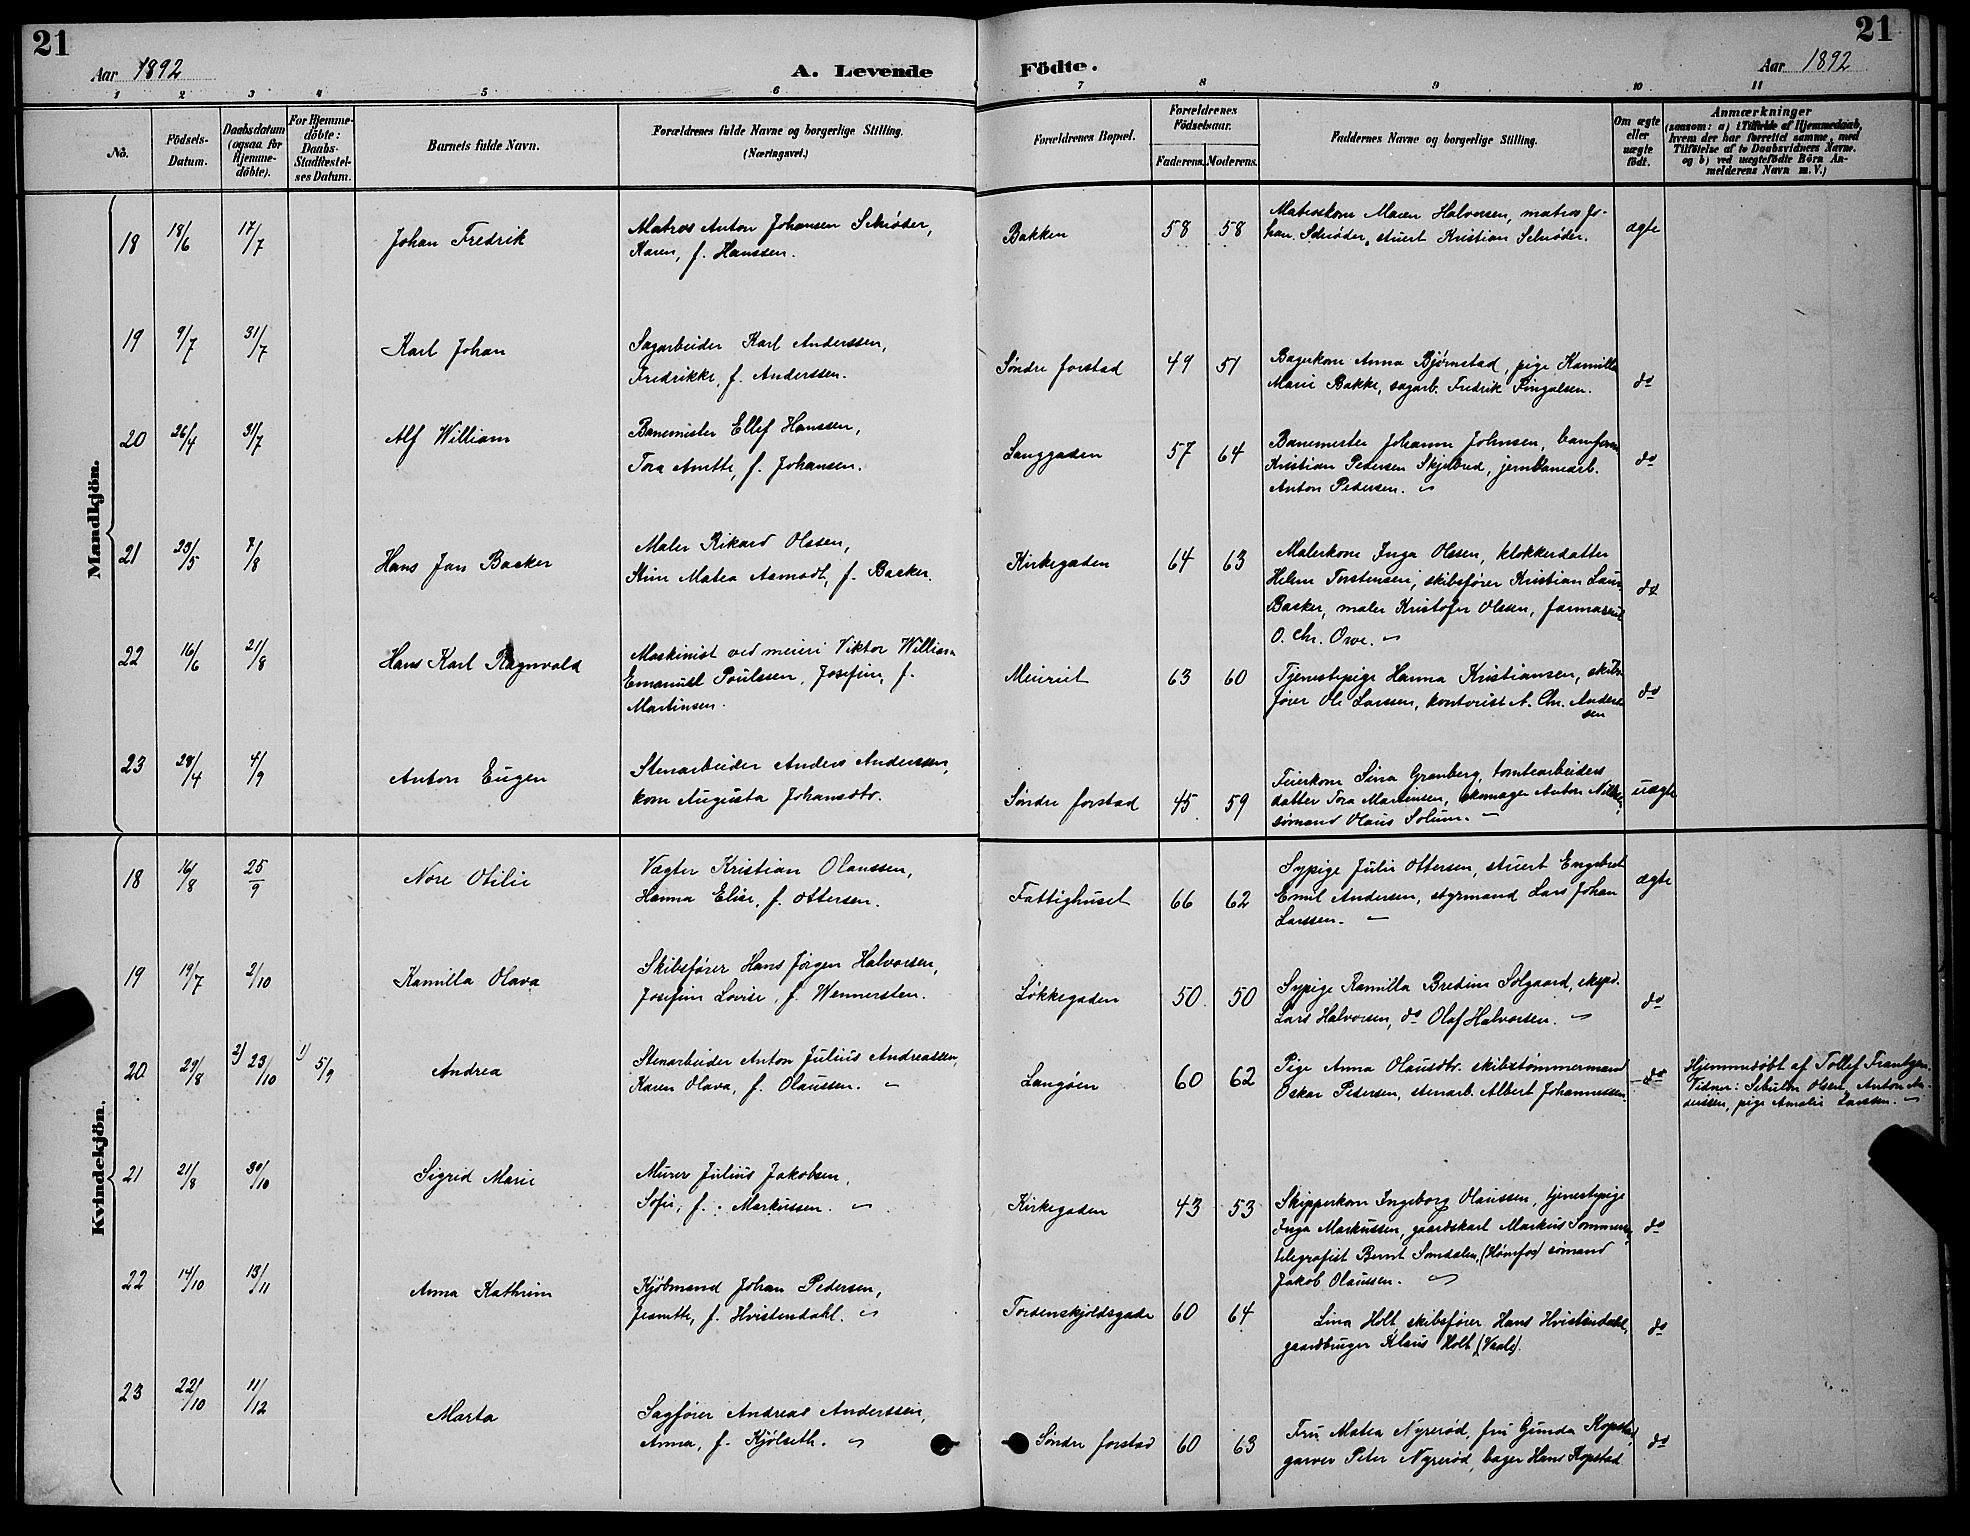 21
Aar 1892
A. Levende
Födte.
Aar 1892
21
1 2 3 4 5 6 7 8 9 10 11
No.
Födsels-
Datum.
Daabsdatum
(ogsaa for
Hjemme-
döbte).
For Hjemme-
döbte:
Daabs-
Stadfæstel-
ses Datum.
Barnets fulde Navn.
Forældrenes fulde Navne og borgerlige Stilling.
(Næringsvei.)
Forældrenes Bopæl.
Forældrenes
Födselsaar.
Faderens. Moderens.
Faddernes Navne og borgerlige Stilling.
Om ægte
eller
uægte
födt.
Anmærkninger
(saasom: a) i Tilfælde af Hjemmedaab,
hvem der har forrettet samme, med
Tilföielse af to Daabsvidners Navne.
og b) ved uægtefödte Börn An-
melderens Navn m. V.)
Mandkjön.
18 18/6 17/7 Johan Fredrik
Matros Anton Johansen Schrøder,
Karen, f. Hanssen.
Bakken 58 58
Matroskone Maren Halvorsen, matros Jo-
han Schrøder, stuert Kristian Schrøder.
ægte
19 9/7 31/7 Karl Johan
Sagarbeider Karl Anderssen,
Fredrikke, f. Anderssen.
Søndre forstad 49 51
Bagerkone Anna Bjørnstad, pige Kamilla
Marie Bakke, sagarb. Fredrik Fingalsen.
do
20 26/4 31/7 Alf William
Banemester Ellef Hanssen,
Tora Anette, f. Johansen.
Langgaden 57 64
Banemester Johanne Johnsen,
Kristian Pedersen Skjelbred, jernbanearb.
Anton Pedersen.
do
21 23/5 7/8 Hans Jan Backer
Maler Rikard Olssen,
Stine Matea Aamodt, f. Backer.
Kirkegaden 64 63
Malerkone Inga Olssen, klokkerdatter
Helene Torstensen, skibsfører Kristian Laur.
Backer, maler Kristofer Olssen, farmaceut
O. Chr. Owe.
do
22 16/6 21/8 Hans Karl Ragnvald
Maskinist ved meieri Viktor William
Emanuel Poulssen, Josefine, f.
Martinsen.
Meieriet 63 60
Tjenestepige Hanna Kristiansen, skibs-
fører Ole Larssen, kontorist A. Chr. Anders-
sen
do
23 28/4 4/9 Anton Eugen
Stenarbeider Anders Anderssen,
kone Augusta Johansdtr.
Søndre forstad 45 59
Feierkone Lina Granberg, tomtearbeiders
datter Tora Martinsen, skomager Anton Nilsen,
sømand Olaus Solum.
uægte
Kvindekjön.
18 16/8 25/9 Nore Otilie
Vægter Kristian Olaussen,
Hanna Elise, f. Ottersen.
Fattighuset 66 62
Sypige Julie Ottersen, stuert Engebret
Emil Andersen, styrmand Lars Johan
Larssen.
ægte
19 19/7 2/10 Kamilla Olava
Skibsfører Hans Jørgen Halvorsen,
Josefine Lovise, f. Wennersten.
Løkkegaden 50 50
Sypige Kamilla Bredine Solgaard, eksped.
Lars Halvorsen, do Olaf Halvorsen.
do
20 29/8 2) 23/10 1) 5/9 Andrea
Stenarbeider Anton Julius Andreassen,
Karen Olava, f. Olaussen.
Langøen 60 62
Pige Anna Olausdtr. skibstømmermand
Oskar Pedersen, stenarb. Albert Johannessen.
do
Hjemmedøbt af Tollef Frantzen.
Vidner: Sebulon Olsen, Anton An-
derssen, pige Amalie Larssen.
21 21/8 30/10 Sigrid Marie
Murer Julius Jakobsen,
Sofie, f. Markussen.
Kirkegaden 43 53
Skipperkone Ingeborg Olaussen, tjenestepige
Inga Markussen, gaardskarl Markus Sommerset,
telegrafist Bernt Somdalen, (Hønefos) sømand
Jakob Olaussen.
do
22 14/10 13/11 Anna Kathrine
Kjøbmand Johan Pedersen,
Jeanette, f. Hvistendahl.
Tordenskjoldsgade 60 64
Lina Holt skibsfører Hans Hvistendahl,
gaardbruger Klaus Holt (Vaale).
do
23 22/10 11/12 Marta
Sagfører Andreas Anderssen,
Anna, f. Kjølseth.
Søndre forstad 60 63
Fru Matea Nyrerød, fru Gunda Kopstad,
garver Peter Nyrerød, bager Hans Kopstad
do